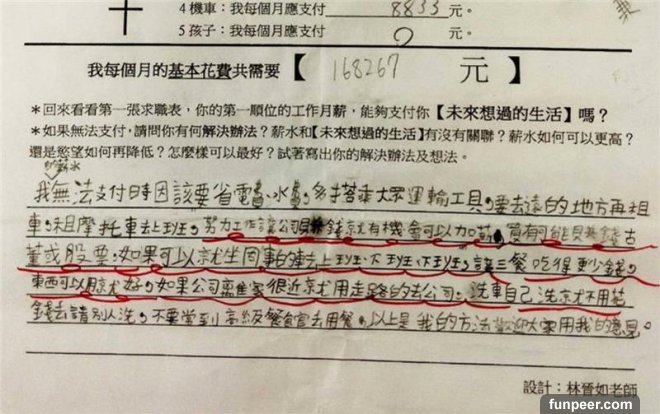 4 機車：我每個月應支付 8833 元。
5 孩子：我每個月應支付 0 元。
我每個月的基本花費共需要【 168267 元 】
＊回來看看第一張求職表，你的第一順位的工作月薪，能夠支付你【未來想過的生活】嗎？
＊如果無法支付，請問你有何解決辦法？薪水和【未來想過的生活】有沒有關聯？薪水如何可以更高？
還是慾望如何再降低？怎麼樣可以最好？試著寫出你的解決辦法及想法。
的薪水
我無法支付時因該要省電費、水費，多搭乘大眾運輸工具，要去遠的地方再租
車，租摩托車去上班，努力工作讓公司賺錢就有機會可以加薪，買有可能賺錢古
董或股票，如果可以就坐同事的車去上班、下班，讓三餐吃得更少錢，
東西可以用就好，如果公司離家很近就用走路的去公司，洗車自己洗就不用花
錢去請別人洗，不要常到高級餐館去用餐，以上是我的方法歡迎大家用我的意見。
設計：林晉如老師
funpeer.com